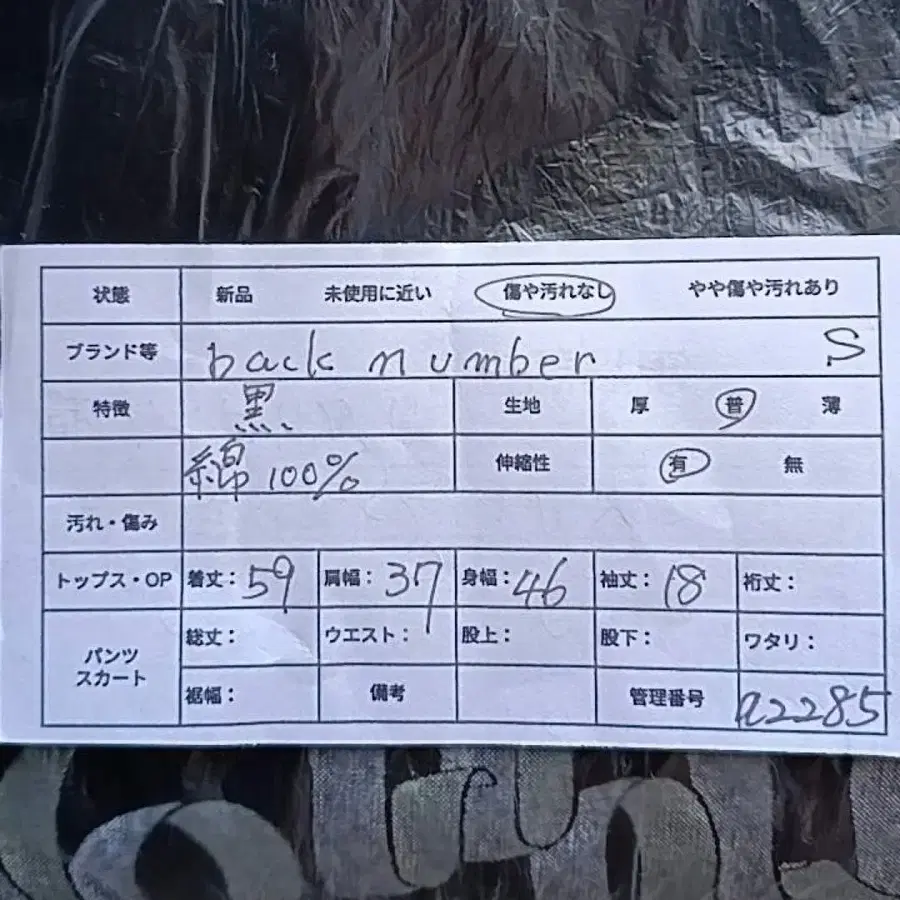 状態 新品 未使用に近い 傷や汚れなし やや傷や汚れあり
ブランド等 back number S
特徴 黒 生地 厚 普 薄
綿 100% 伸縮性 有 無
汚れ・傷み
トップス・OP 着丈: 59 肩幅: 37 身幅: 46 袖丈: 18 裄丈:
パンツ スカート 総丈: ウエスト: 股上: 股下: ワタリ:
裾幅: 備考 管理番号 a2285